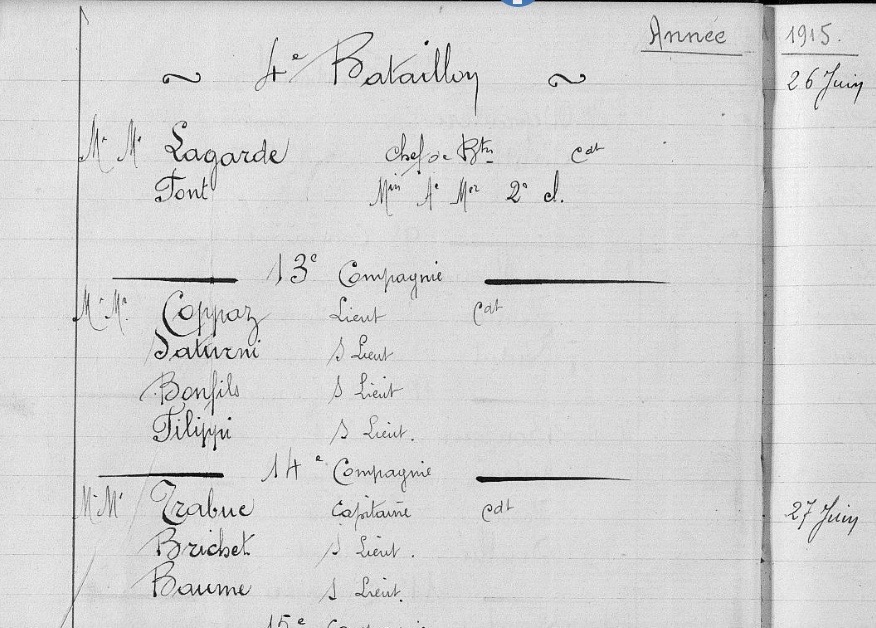 Année 1915.
~ 4e Bataillon ~
26 Juin
Mr Mr Lagarde chef de Btn Cdt
Font Min Ae Mor 2e cl.
13e Compagnie
Mr Mr Coppaz Lieut Cdt
Saturni S Lieut
Bonfils S Lieut
Filippi S Lieut.
14e Compagnie
Mr Mr Trabuc Capitaine Cdt
27 Juin
Brichet S Lieut.
Baume S Lieut.
15e